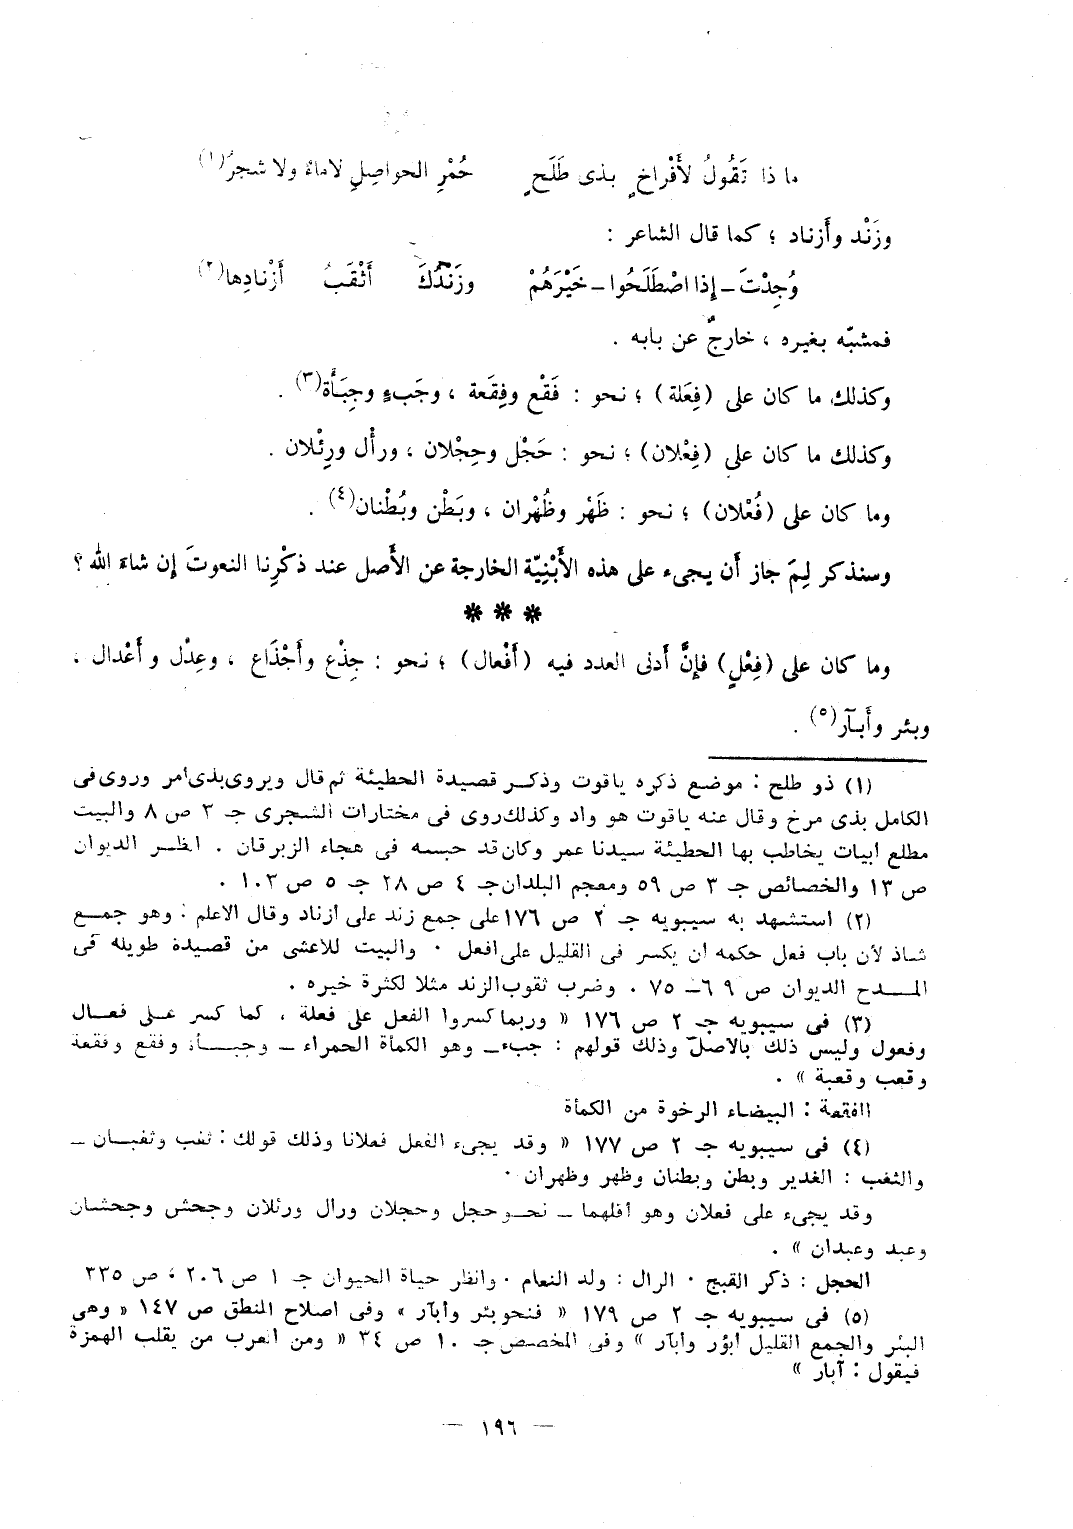 ما ذا تَقُولُ لأَفْراخٍ بذى طَلَحٍ حُمْرِ الحواصِلِ لاماءٌ ولا شجرُ(١)
وزَنْد وأَزناد ؛ كما قال الشاعر :
وُجِدْتَ ــ إذا اصْطَلَحُوا ــ خَيْرَهُمْ وزَنْدُكَ أَثْقَبُ أَزْنادِها(٢)
فمشبّه بغيره ، خارجٌ عن بابه .
وكذلك ما كان على (فِعَلة) ؛ نحو : فَقْع وفِقَعة ، وجَبءٍ وجِبَأَة(٣) .
وكذلك ما كان على (فِعْلان) ؛ نحو : حَجْل وحِجْلان ، ورأْل ورِئْلان .
وما كان على (فُعْلان) ؛ نحو : ظَهْر وظُهْران ، وبَطْن وبُطْنان(٤) .
وسنذكر لِمَ جاز أَن يجىء على هذه الأَبْنِيّة الخارجة عن الأَصل عند ذكْرِنا النعوتَ إن شاءَ الله ؟
***
وما كان على (فِعْلٍ) فإنَّ أَدنى العدد فيه (أَفْعال) ؛ نحو : جِذْع وأَجْذَاع ، وعِدْل وأَعْدال .
وبئر وأَبآر(٥) .
(١) ذو طلح : موضع ذكره ياقوت وذكر قصيدة الحطيئة ثم قال ويروى بذى أمر وروى فى
الكامل بذى مرخ وقال عنه ياقوت هو واد وكذلك روى فى مختارات الشجرى جـ ٣ ص ٨ والبيت
مطلع أبيات يخاطب بها الحطيئة سيدنا عمر وكان قد حبسه فى هجاء الزبرقان . انظر الديوان
ص ١٣ والخصائص جـ ٣ ص ٥٩ ومعجم البلدان جـ ٤ ص ٢٨ جـ ٥ ص ١٠٣ .
(٢) استشهد به سيبويه جـ ٢ ص ١٧٦ على جمع زند على أزناد وقال الأعلم : وهو جمع
شاذ لأن باب فعل حكمه أن يكسر فى القليل على أفعل . والبيت للأعشى من قصيدة طويله فى
المدح الديوان ص ٦٩ــ ٧٥ . وضرب ثقوب الزند مثلا لكثرة خيره .
(٣) فى سيبويه جـ ٢ ص ١٧٦ « وربما كسروا الفعل على فعلة ، كما كسر على فعال
وفعول وليس ذلك بالأصل وذلك قولهم : جبء ــ وهو الكمأة الحمراء ــ وجبأة وفقع وفقعة
وقعب وقعبة » .
الفقعة : البيضاء الرخوة من الكمأة
(٤) فى سيبويه جـ ٢ ص ١٧٧ « وقد يجىء الفعل فعلانا وذلك قولك : ثغب وثغبان ــ
والثغب : الغدير وبطن وبطنان وظهر وظهران .
وقد يجىء على فعلان وهو أقلهما ــ نحو حجل وحجلان ورال ورئلان وجحش وجحشان
وعبد وعبدان » .
الحجل : ذكر القبج . الرال : ولد النعام . وانظر حياة الحيوان جـ ١ ص ٢٠٦ ، ص ٣٣٥
(٥) فى سيبويه جـ ٢ ص ١٧٩ « فنحو بئر وأبآر » وفى اصلاح المنطق ص ١٤٧ « وهى
البئر والجمع القليل أبؤر وأبآر » وفى المخصص جـ ١٠ ص ٣٤ « ومن العرب من يقلب الهمزة
فيقول : آبار »
ــ ١٩٦ ــ